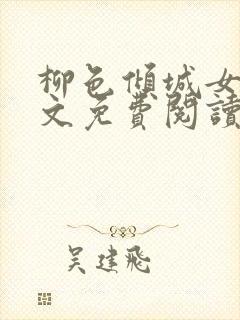 柳色傾城女
文免費閱讀
吴建飛